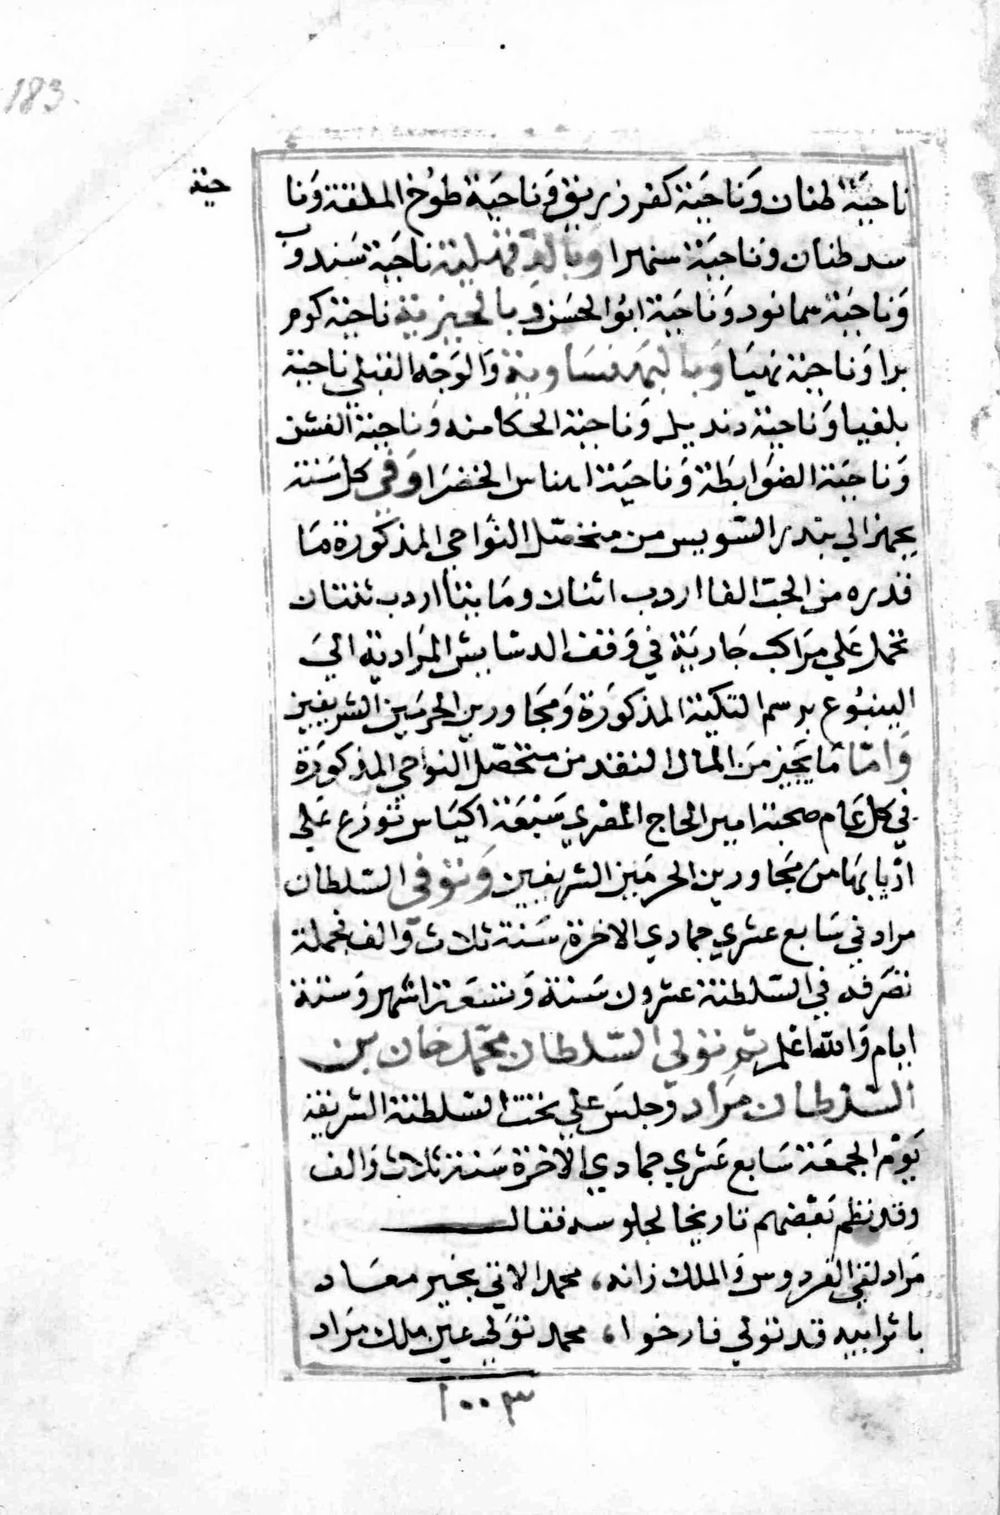 183
ناحية طنان وناحية كفر زريق وناحية طوخ الملقة ونا
حية
سد طنان وناحية سنهرا وبالدقهلية ناحية سندوب
وناحية سمانود وناحية ابو الحسن وبالجيزية ناحية كوم
برا وناحية نهيا وبالبهنساوية والوجه القبلي ناحية
بلفيا وناحية دنديل وناحية الحكامنه وناحية الفشن
وناحية الضوابطة وناحية اهناس الخضرا وفي كل سنة
يجهز الي بندر السويس من متحصل النواحي المذكورة ما
قدره من الحب الفا اردب اثنان وما يتا اردب ثنتان
تحمل علي مراكب جارية في وقف الدشايش المرادية الي
الينبوع برسم التكية المذكورة ومجاورين الحرمين الشريفين
واما ما يجهز من المال النقد من متحصل النواحي المذكورة
في كل عام صحبة امير الحاج المصري سبعة اكياس توزع علي
اربابها من مجاورين الحرمين الشريفين وتوفي السلطان
مراد في سابع عشري جمادي الاخرة سنة ثلاث والف فجملة
تصرفه في السلطنة عشرون سنة وتسعة اشهر وستة
ايام والله اعلم ثم تولي السلطان محمد خان بن
السلطان مراد وجلس علي تخت السلطنة الشريفة
يوم الجمعة سابع عشري جمادي الاخرة سنة ثلاث والف
وقد نظم بعضهم تاريخا لجلوسه فقال
مراد لقي الفردوس والملك زانه، محمد الاتي بخير معاد
باثر ابيه قد تولي فارخوا، محمد تولي عين ملك مراد
١٠٠٣